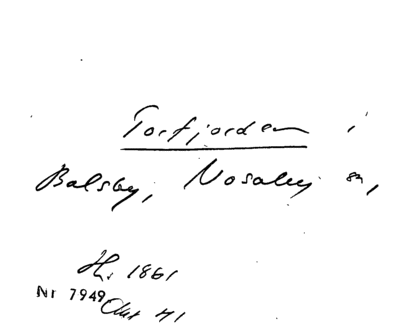 Torfjorden i
Balsby, Nosaby sn,
Hs. 1861
Nr 7949 Akt 41